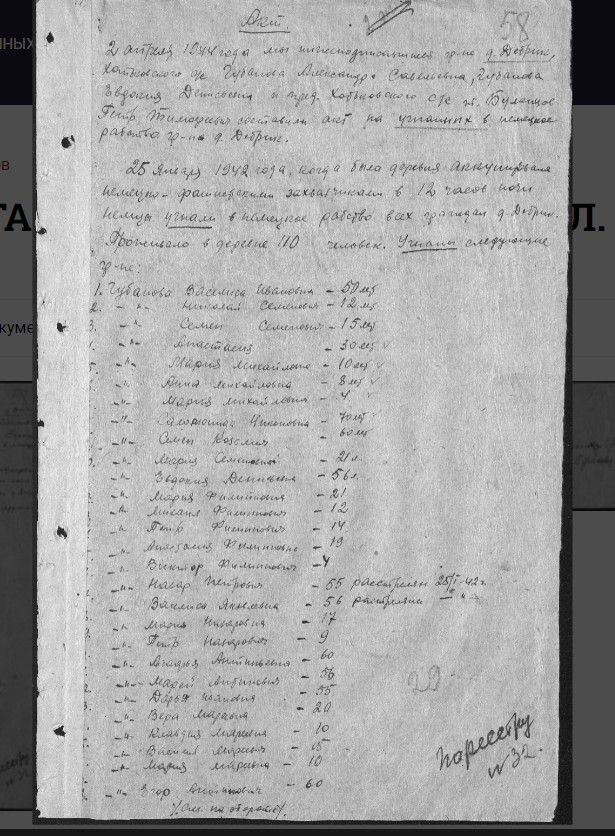 58
Акт.
2 апреля 1944 года мы нижеподписавшиеся гр-не д. Добрик,
Хотьковского с/с Чубанова Александра Савельевна, Чубанова
Евдокия Денисовна и пред. Хотьковского с/с
Петр Тимофеевич составили акт на угнанных в немецкое
рабство гр-н д. Добрик.
25 января 1942 года, когда была деревня
немецко-фашистскими захватчиками в 12 часов ночи
немцы угнали в немецкое рабство всех граждан д. Добрик.
Проживало в деревне 110 человек. Угнаны следующие
гр-не:
1. Чубанова Василиса Ивановна – 50 лет
2. –"– Николай Семенович – 12 лет
3. –"– Семен Семенович – 15 лет
–"– Анастасия – 30 лет
–"– Мария Михайловна – 10 лет
–"– Анна Михайловна – 8 лет
–"– Мария Михайловна – 4
–"– Никоновна – 70 лет
–"– Семен – 60 лет
–"– Мария Семеновна – 21 л.
–"– Евдокия Денисовна – 56 л.
–"– Мария Филипповна – 21
–"– Михаил Филиппович – 12
–"– Петр Филиппович – 14
–"– Анастасия Филипповна – 19
–"– Виктор Филиппович – 4
–"– Назар Петрович – 55 расстрелян 25/I-42г.
–"– Василиса Яковлевна – 56 расстреляна –"–
–"– Мария Назаровна – 17
–"– Петр Назарович – 9
–"– – 60
–"– Марей – 56
–"– Дарья Ивановна – 55
–"– Вера Мареевна – 20
–"– Клавдия Мареевна – 10
–"– Василий Мареевич – 15
–"– Мария Мареевна – 10
–"– Егор – 60
/см. на обороте/.
29
по реестру
№ 32.